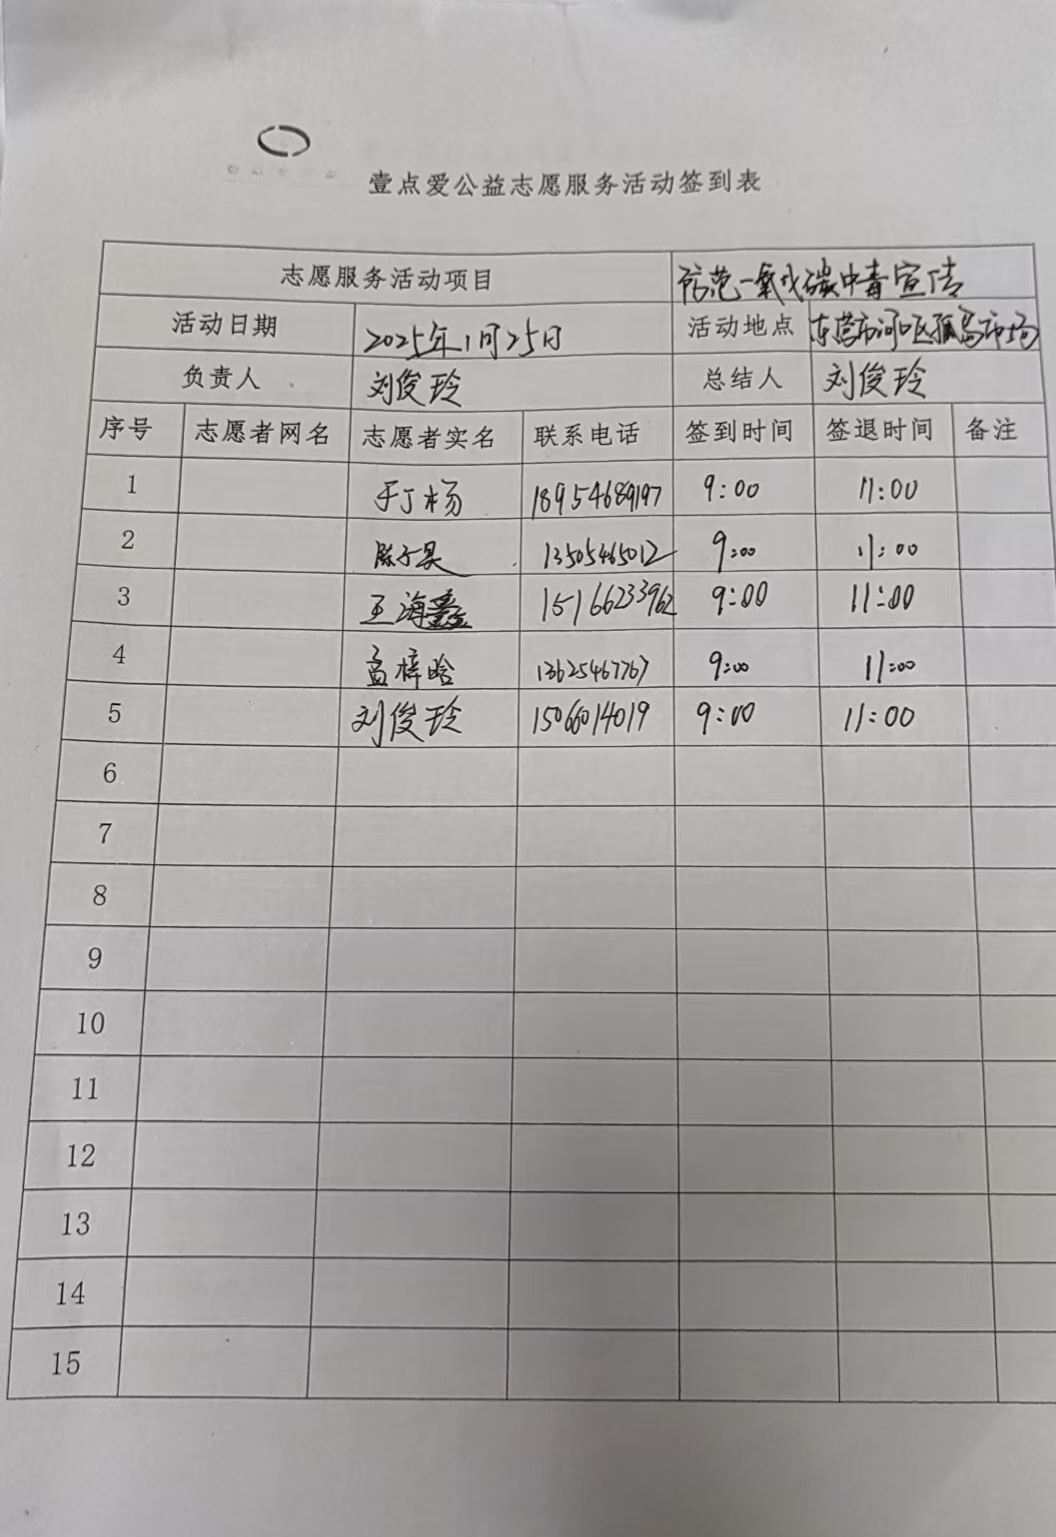 壹点爱公益志愿服务活动签到表
志愿服务活动项目 防范一氧化碳中毒宣传
活动日期 2025年1月25日 活动地点 东营市河口区孤岛市场
负责人 刘俊玲 总结人 刘俊玲
序号 志愿者网名 志愿者实名 联系电话 签到时间 签退时间 备注
1 于丁杨 18954689197 9:00 11:00
2 陈子昊 13505465012 9:00 11:00
3 王海鑫 15166233962 9:00 11:00
4 孟梓晗 13625467767 9:00 11:00
5 刘俊玲 15066014019 9:00 11:00
6
7
8
9
10
11
12
13
14
15